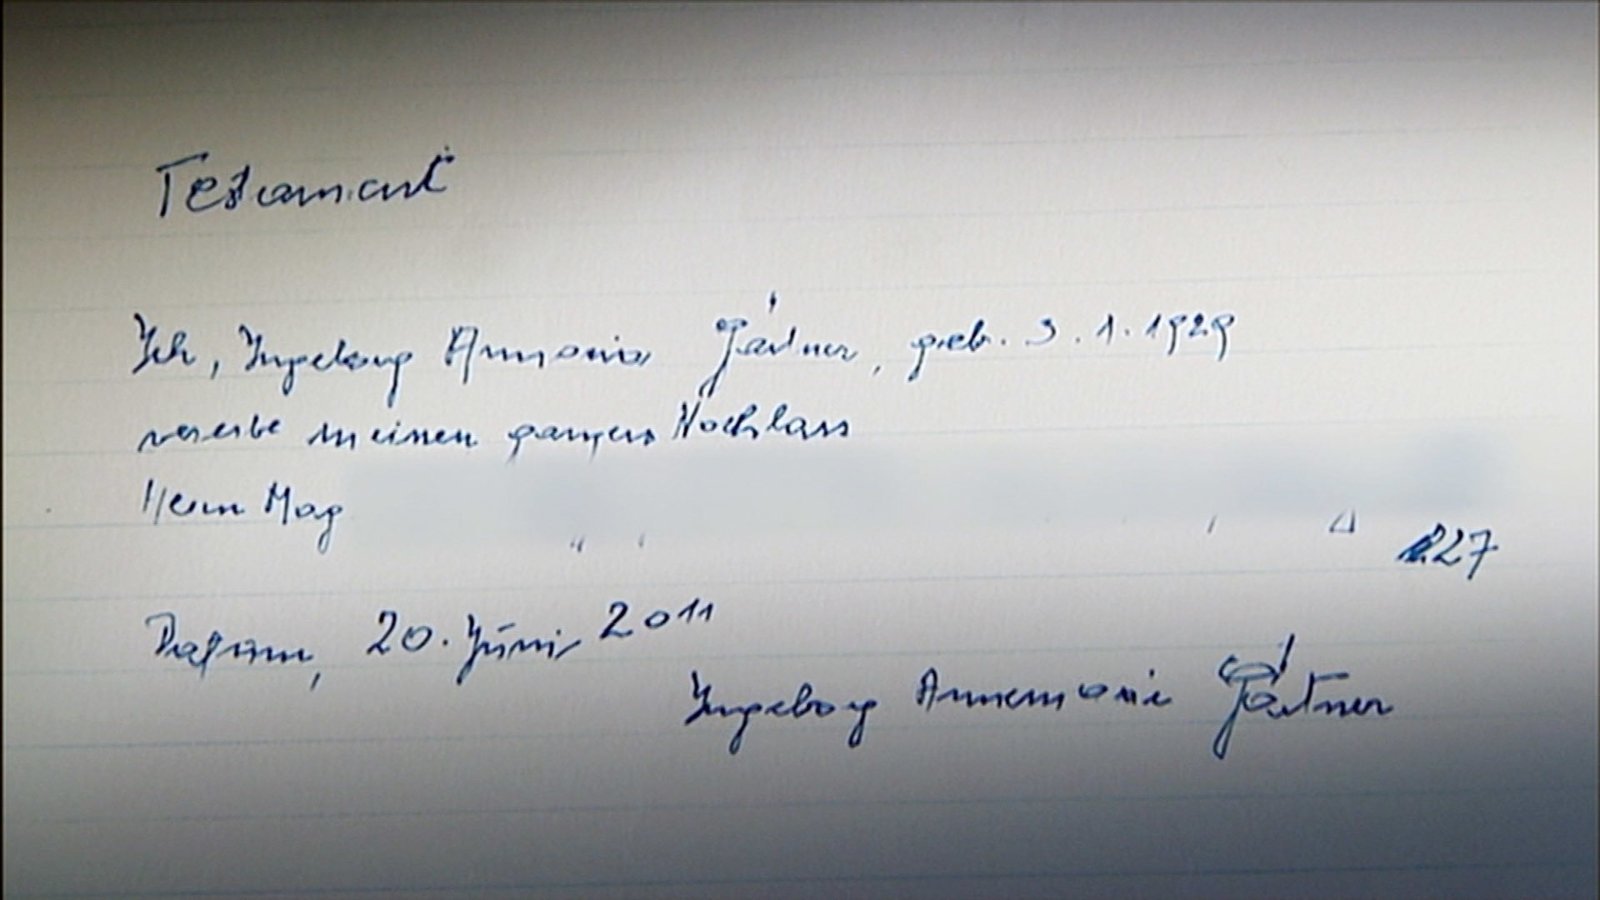 Testament
Ich, Ingeborg Annemarie Gärtner, geb. 3.1.1929
vererbe meinen ganzen Nachlass
Herrn Mag
227
20. Juni 2011
Ingeborg Annemarie Gärtner